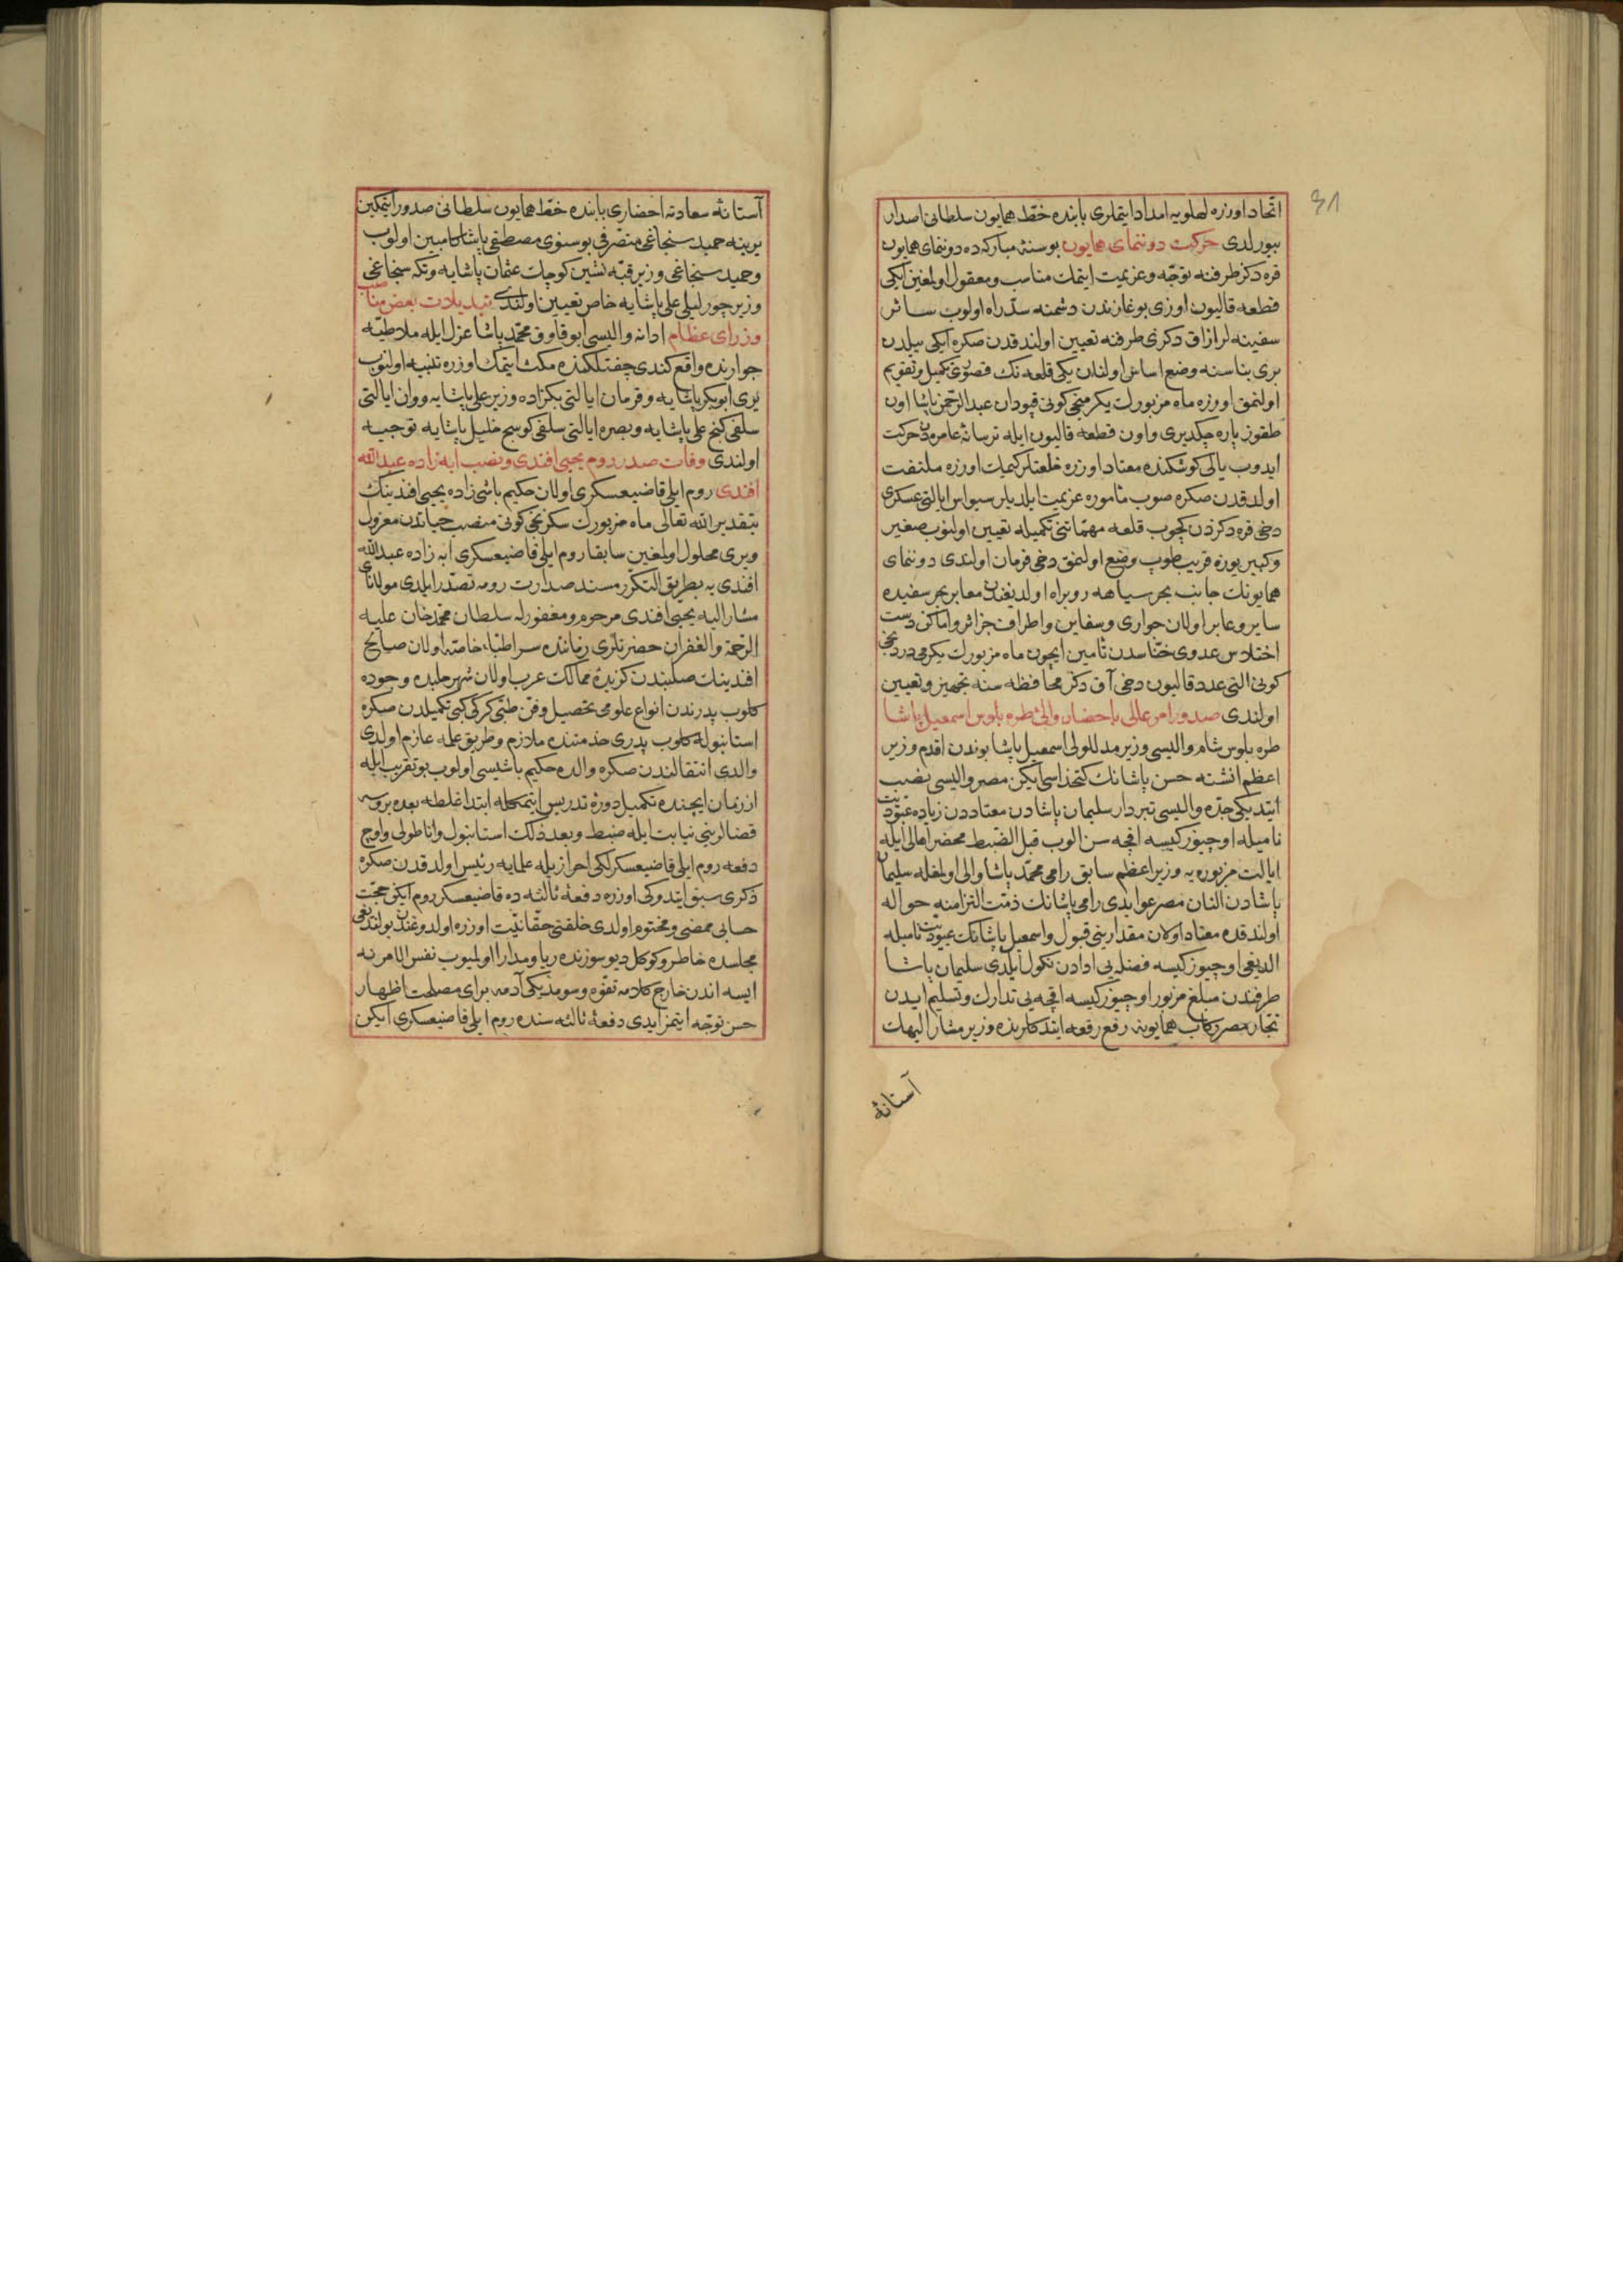 ٣١
اتحاد اوزره لهلويه امداد ايتملری بابنده خط همايون سلطانی اصدار
بيورلدی حركت دوننمای همايون بو سنۀ مباركه ده دوننمای همايون
قره دكز طرفنه توجه و عزيمت ايتمك مناسب و معقول اولمغين ايكی
قطعه قاليون اوزی بوغازندن دشمنه سد راه اولوب سائر
سفينه لر ازاق دكزی طرفنه تعيين اولندقدن صكره ايكی ييلدن
بری بناسنه وضع اساس اولنان يكی قلعه نك قصوری تكميل و تقويم
اولنمق اوزره ماه مزبورك يكرمنجی كونی قپودان عبد الرحمن پاشا اون
طقوز پاره چكديری و اون قطعه قاليون ايله ترسانۀ عامره دن حركت
ايدوب يالی كوشكنده معتاد اوزره خلعتلر كيمك اوزره ملتفت
اولدقدن صكره صوب مأموره عزيمت ايلديلر سيواس ايالتی عسكری
دخی قره دكزدن كچوب قلعه مهماتنی تكميله تعيين اولنوب صغير
و كبير يوزه قريب طوپ وضع اولنمق دخی فرمان اولندی دوننمای
همايونك جانب بحر سياهه رو براه اولديغندن معابر بحر سفيده
ساير و عابر اولان جواری و سفاين و اطراف جزائر و اماكن دست
اختلاس عدوی خناسدن تأمين ايچون ماه مزبورك يكرمی دردنجی
كونی التی عدد قاليون دخی آق دكز محافظه سنه تجهيز و تعيين
اولندی صدور امر عالی باحضار والئ طره بلوس اسمعيل پاشا
طره بلوس شام واليسی وزير مدللولی اسمعيل پاشا بوندن اقدم وزير
اعظم انشته حسن پاشانك كتخداسی ايكن مصر واليسی نصب
ايتديكی جده واليسی تبردار سليمان پاشادن معتاددن زياده عبوديت
ناميله اوچيوز كيسه اقچه سن الوب قبل الضبط محضر اهالی ايله
ايالت مزبوره يه وزير اعظم سابق رامی محمد پاشا والی اولمغله سليمان
پاشادن النان مصر عوايدی رامی پاشانك ذمت التزامنه حواله
اولندقده معتاد اولان مقدارينی قبول و اسمعيل پاشانك عبوديت ناميله
الديغی اوچيوز كيسه فضله يی ادادن نكول ايلدی سليمان پاشا
طرفندن مبلغ مزبور اوچيوز كيسه اقچه يی تدارك و تسليم ايدن
تجار مصر ركاب همايونه رفع رقعه ايتدكلرنده وزير مشار اليهك
آستانۀ
آستانۀ سعادته احضاری بابنده خط همايون سلطانی صدور ايتمكين
يرينه حميد سنجاغی متصرفی بوسنوی مصطفی پاشا كامبين اولوب
و حميد سنجاغی وزير قبه نشين كوچك عثمان پاشايه و تكه سنجاغی
وزير چورليلی علی پاشايه خاص تعيين اولندی تبديلات بعض مناصب
وزرای عظام ادانه واليسی ابو قاوق محمد پاشا عزل ايله ملاطيه
جوارنده واقع كندی چفتلكنده مكث ايتمك اوزره تنبيه اولنوب
يری ابو بكر پاشايه و قرمان ايالتی بكزاده وزير علی پاشايه و وان ايالتی
سلفی كنج علی پاشايه و بصره ايالتی سلفی كوسج خليل پاشايه توجيه
اولندی وفات صدر روم يحيی افندی و نصب ابه زاده عبد الله
افندی روم ايلی قاضيعسكری اولان حكيم باشی زاده يحيی افندينك
بتقدير الله تعالی ماه مزبورك سكزنجی كونی منصب حياتدن معزول
و يری محلول اولمغين سابقا روم ايلی قاضيعسكری ابه زاده عبد الله
افندی يه بطريق التكرر مسند صدارت رومه تصدر ايلدی مولانای
مشار اليه يحيی افندی مرحوم و مغفور له سلطان محمد خان عليه
الرحمة و الغفران حضرتلری زماننده سر اطباء خاصه اولان صالح
افندينك صلبندن كزيدۀ ممالك عرب اولان شهر حلبده وجوده
كلوب پدرندن انواع علومی تحصيل و فن طبی كركی كبی تكميلدن صكره
استانبوله كلوب پدری خدمتنده ملازم و طريق علمه عازم اولدی
والدی انتقالندن صكره والده حكيم باشيسی اولوب بو تقريب ايله
از زمان ايچنده تكميل دورۀ تدريس ايتمكله ابتدا غلطه بعده بروسه
قضالرينی نيابت ايله ضبط و بعد ذلك استانبول و اناطولی و اوچ
دفعه روم ايلی قاضيعسكرلكی احرازيله علمايه رئيس اولدقدن صكره
ذكری سبق ايتدوكی اوزره دفعۀ ثالثه ده قاضيعسكر روم ايكن حجت
حسابی ممضی و مختوم اولدی خلقتی حقانيت اوزره اولدوغندن بولنديغی
مجلسده خاطر و كوكل ديو سوزنده ريا و مدارا اولميوب نفس الامر نه
ايسه اندن خارج كلامه تفوه و سومديكی آدمه برای مصلحت اظهار
حسن توجه ايتمز ايدی دفعۀ ثالثه سنده روم ايلی قاضيعسكری ايكن